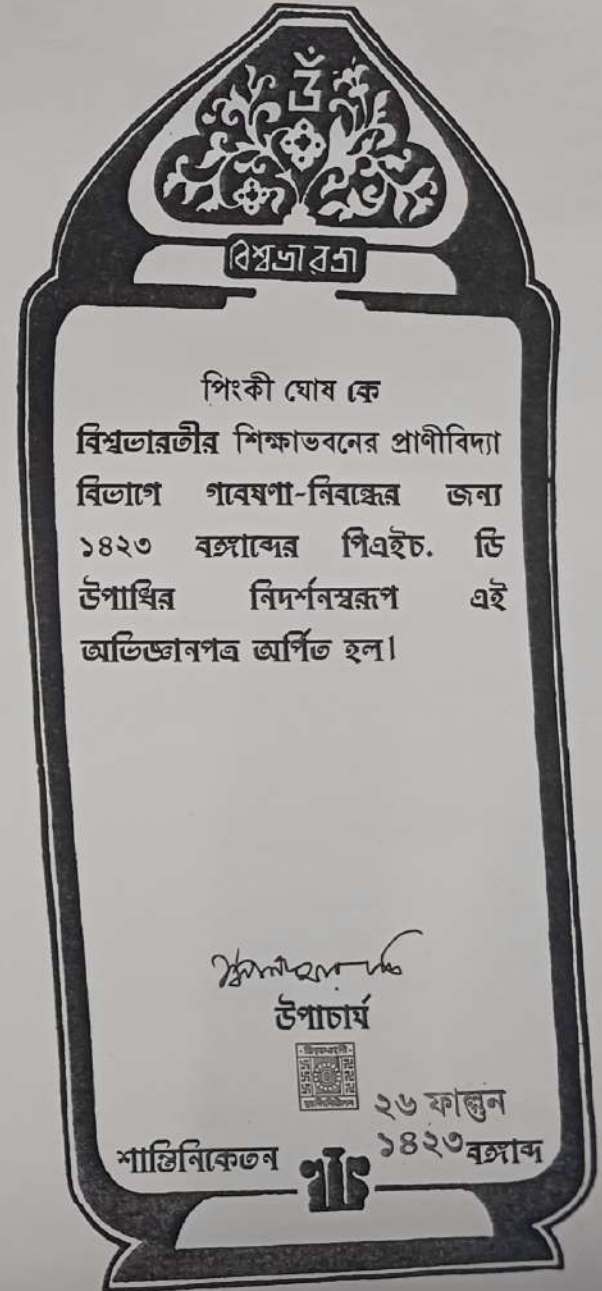 ওঁ
বিশ্বভারতী
পিংকী ঘোষ কে
বিশ্বভারতীর শিক্ষাভবনের প্রাণীবিদ্যা
বিভাগে গবেষণা-নিবন্ধের জন্য
১৪২৩ বঙ্গাব্দের পিএইচ. ডি
উপাধির নিদর্শনস্বরূপ এই
অভিজ্ঞানপত্র অর্পিত হল।
উপাচার্য
২৬ ফাল্গুন
শান্তিনিকেতন ১৪২৩ বঙ্গাব্দ